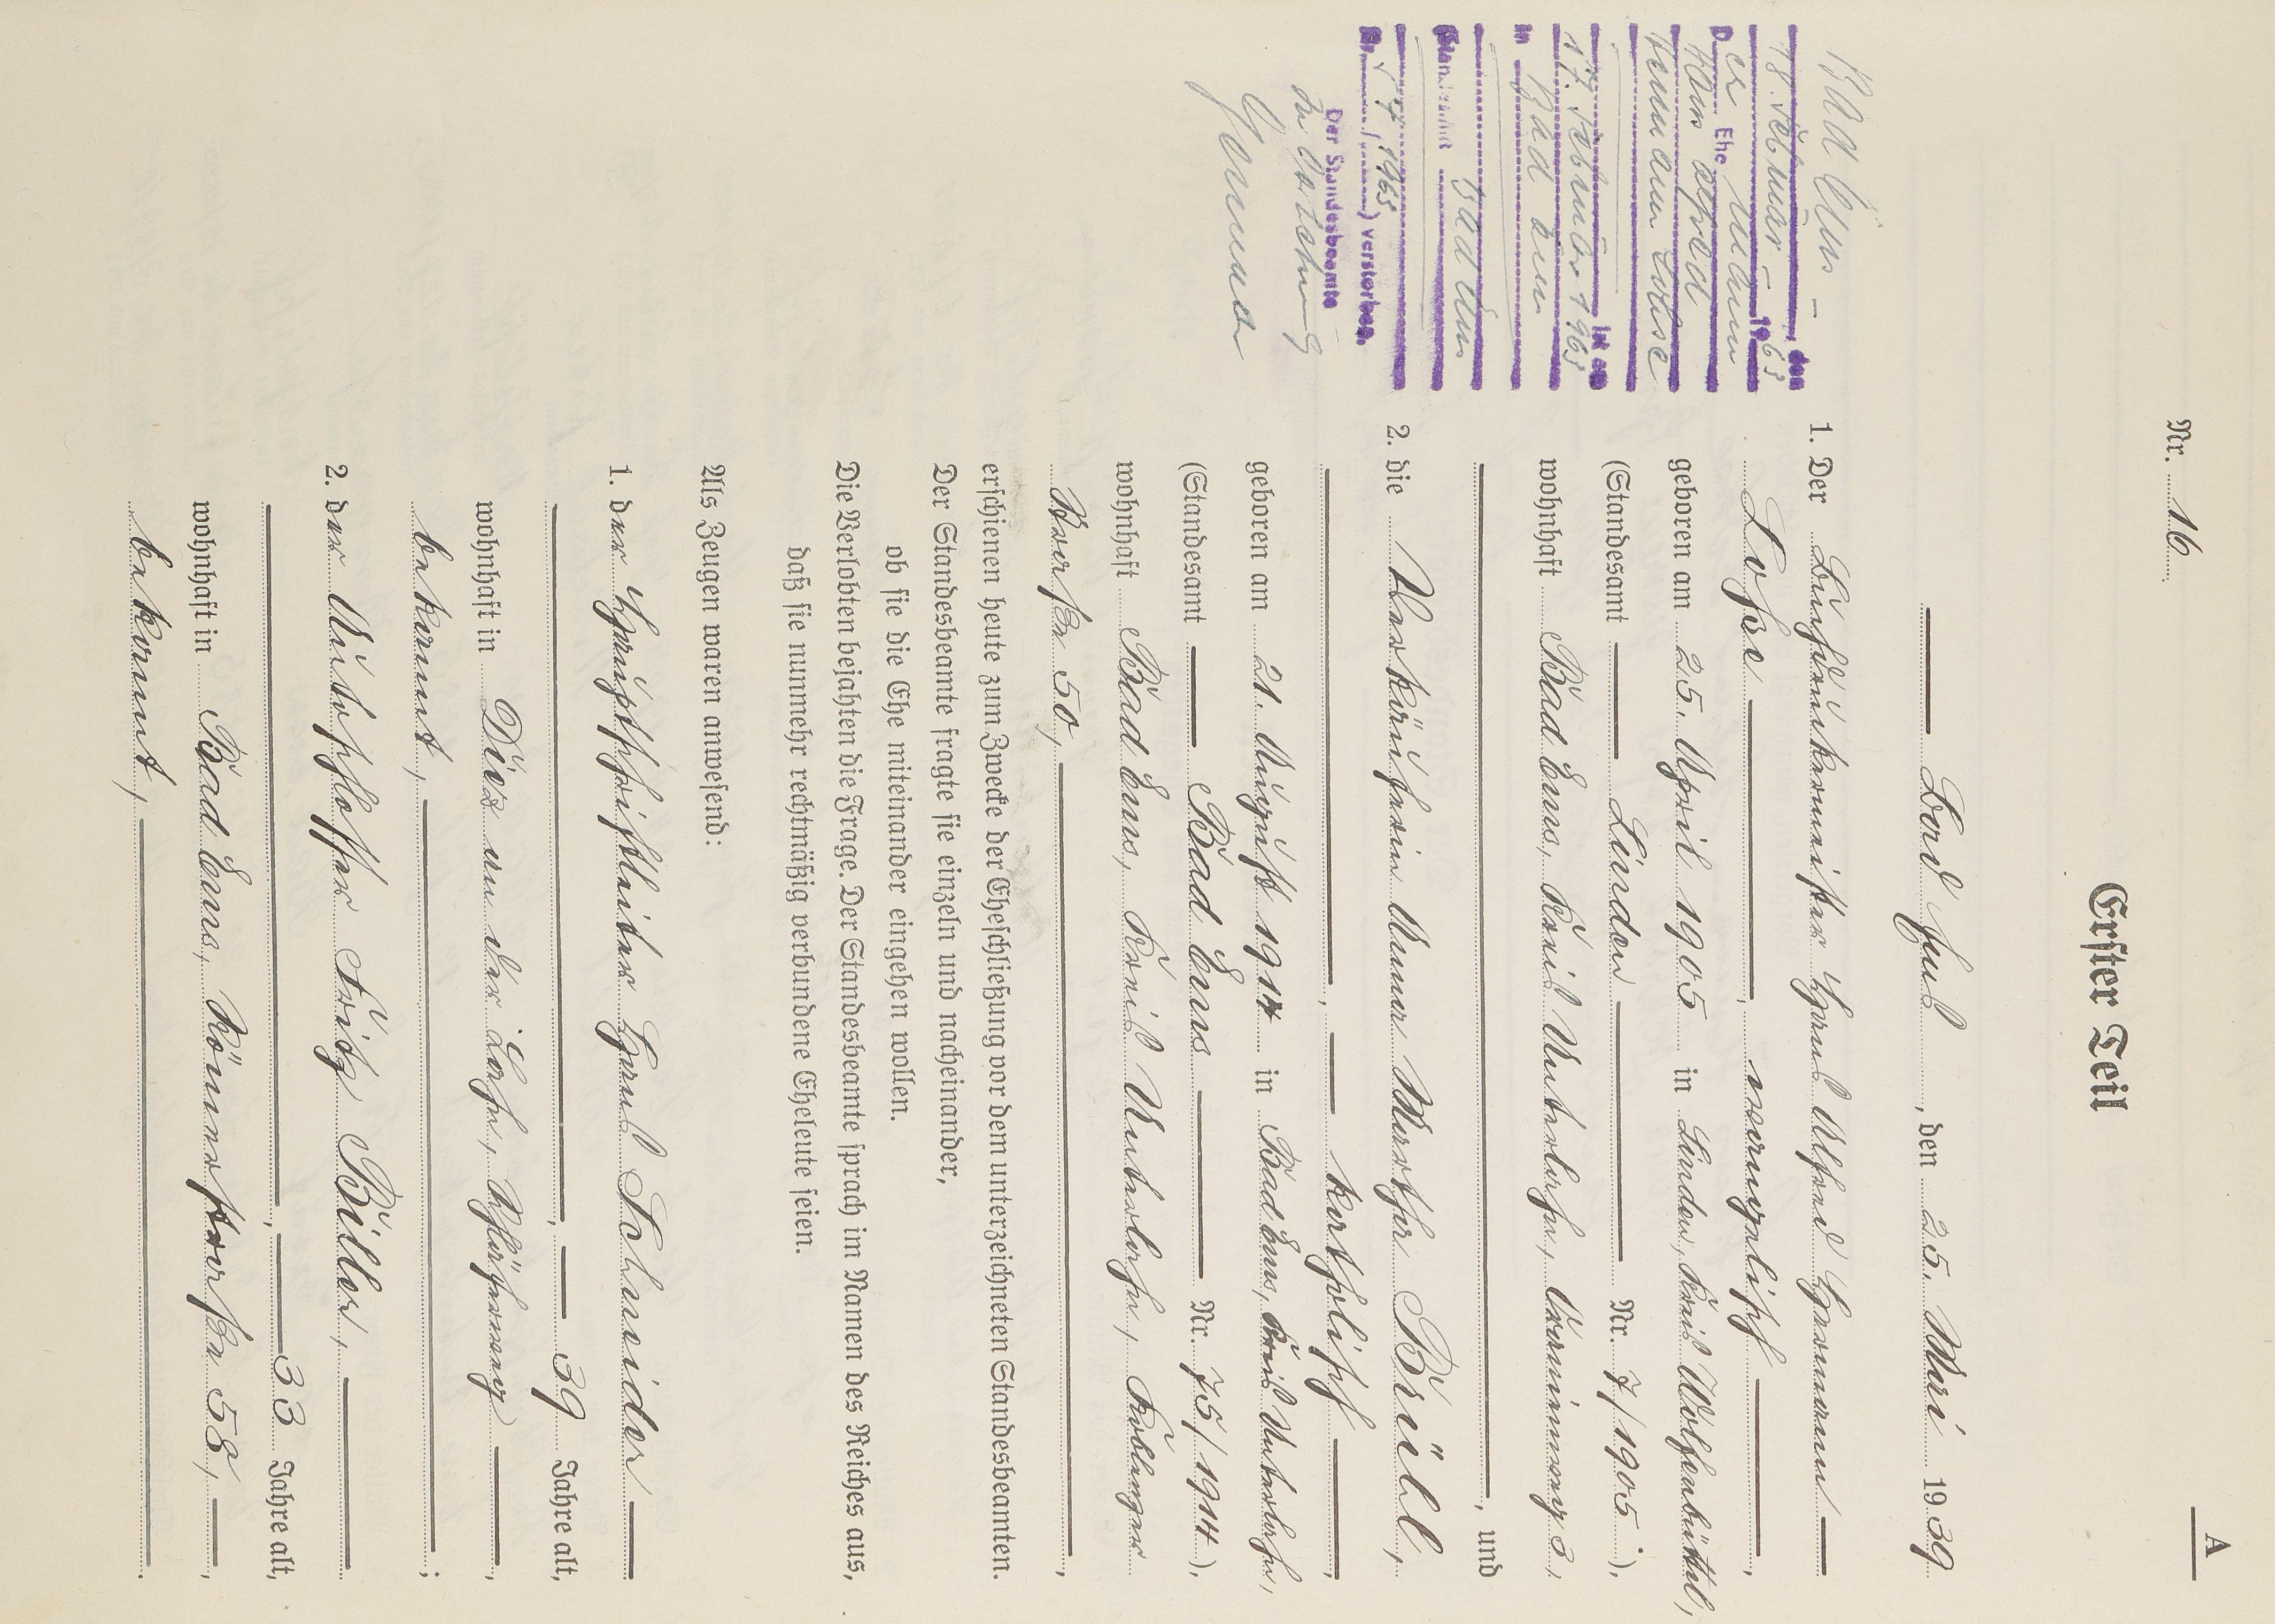 A
Nr. 16
Erster Teil
Bad Ems, den 25. Mai 1939
1. Der Hans Alfred Hermann
Lohse, evangelisch,
geboren am 25. April 1905 in Linden, Kreis Wolfenbüttel,
(Standesamt Linden Nr. 7/1905),
wohnhaft Bad Ems, Kreis Unterlahn, 3,
, und
2. die Verkäuferin Anna Martha Brühl,
, katholisch,
geboren am 21. August 1914 in Bad Ems, Kreis Unterlahn,
(Standesamt Bad Ems Nr. 75/1914),
wohnhaft Bad Ems, Kreis Unterlahn, Koblenzer
straße 50,
erschienen heute zum Zwecke der Eheschließung vor dem unterzeichneten Standesbeamten.
Der Standesbeamte fragte sie einzeln und nacheinander,
ob sie die Ehe miteinander eingehen wollen.
Die Verlobten bejahten die Frage. Der Standesbeamte sprach im Namen des Reiches aus,
daß sie nunmehr rechtmäßig verbundene Eheleute seien.
Als Zeugen waren anwesend:
1. der Hauptschriftleiter Hans Schneider
, 39 Jahre alt,
wohnhaft in Diez an der Lahn,
bekannt, ;
2. der Autoschlosser Fritz Biller,
, 33 Jahre alt,
wohnhaft in Bad Ems, Römerstraße 58,
bekannt, .
Bad Ems, den
18. Februar 1963
Der Ehemann
Hans Alfred
Hermann Lohse
ist am
17. Februar 1963
in Bad Ems
Standesamt Bad Ems
Nr. /1963) verstorben.
Der Standesbeamte
In Vertretung